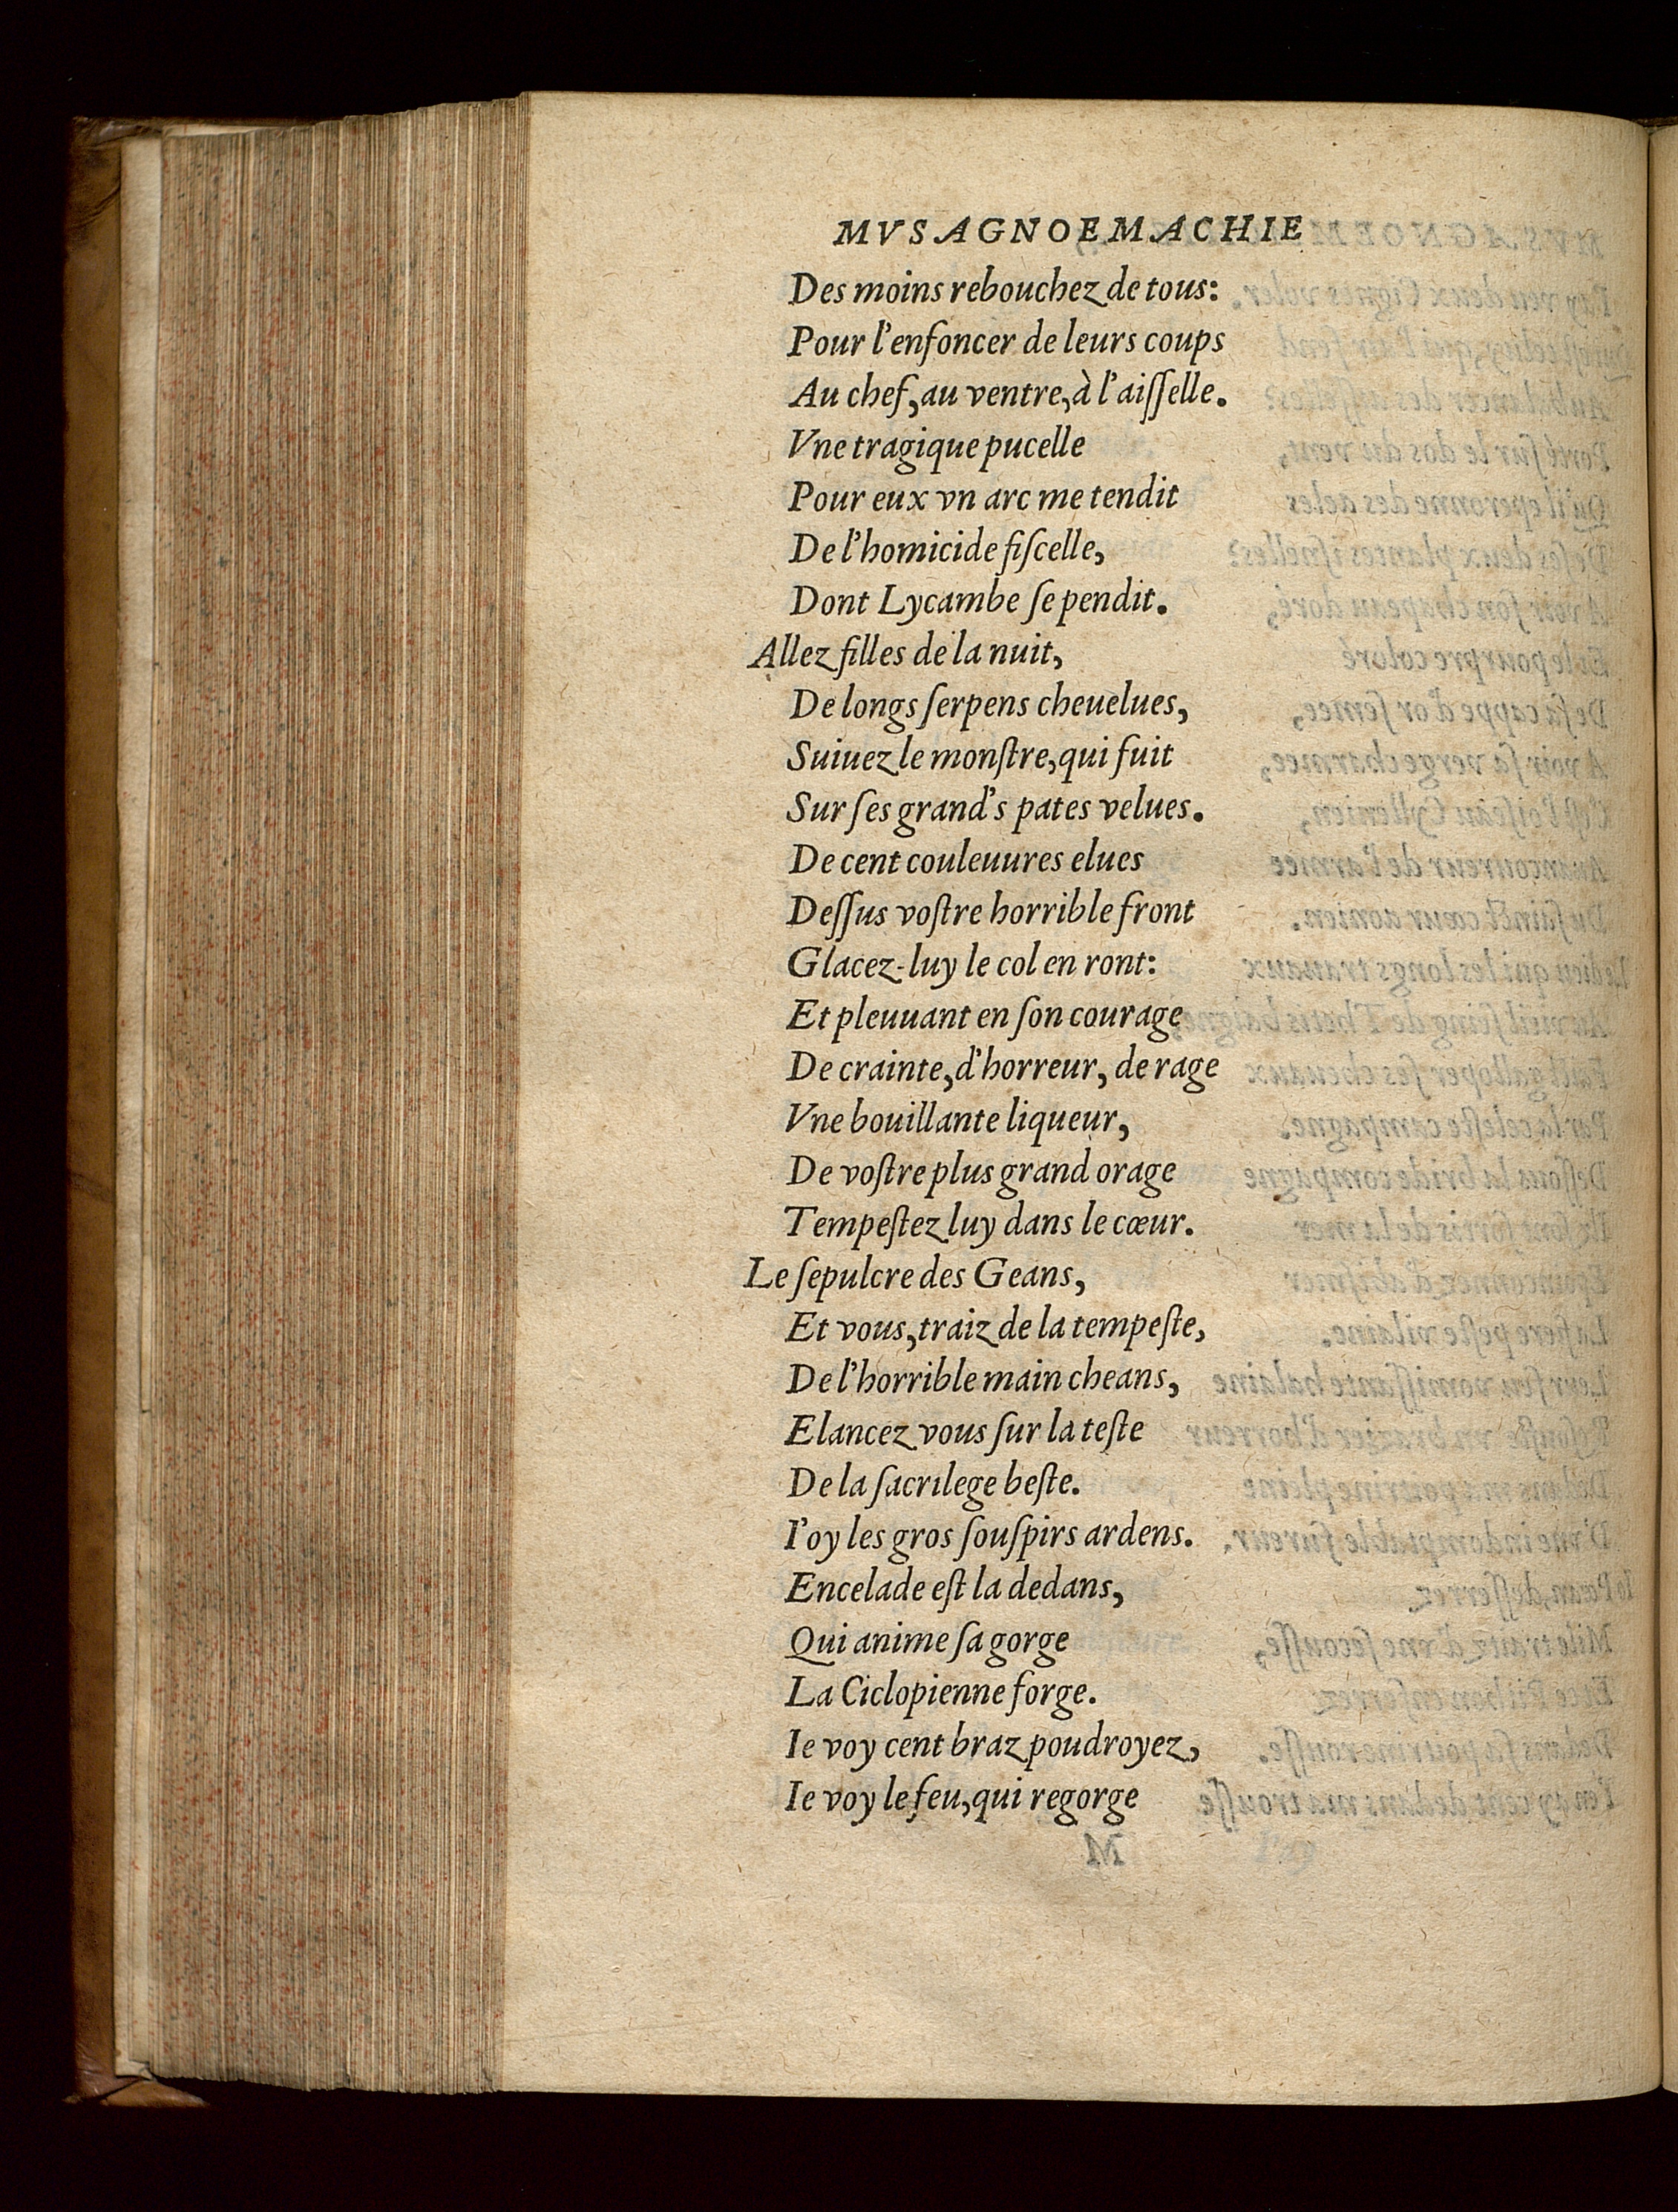 MVSAGNOEMACHIE
Des moins rebouchez de tous:
Pour l'enfoncer de leurs coups
Au chef, au ventre, à l'aiſſelle.
Vne tragique pucelle
Pour eux vn arc me tendit
De l'homicide fiſcelle,
Dont Lycambe ſe pendit.
Allez filles de la nuit,
De longs ſerpens cheuelues,
Suiuez le monſtre, qui fuit
Sur ſes grand's pates velues.
De cent couleuures elues
Deſſus voſtre horrible front
Glacez-luy le col en ront:
Et pleuuant en ſon courage
De crainte, d'horreur, de rage
Vne bouillante liqueur,
De voſtre plus grand orage
Tempeſtez luy dans le cœur.
Le ſepulcre des Geans,
Et vous, traiz de la tempeſte,
De l'horrible main cheans,
Elancez vous ſur la teſte
De la ſacrilege beſte.
I'oy les gros ſouſpirs ardens.
Encelade eſt la dedans,
Qui anime ſa gorge
La Ciclopienne forge.
Ie voy cent braz poudroyez,
Ie voy le feu, qui regorge